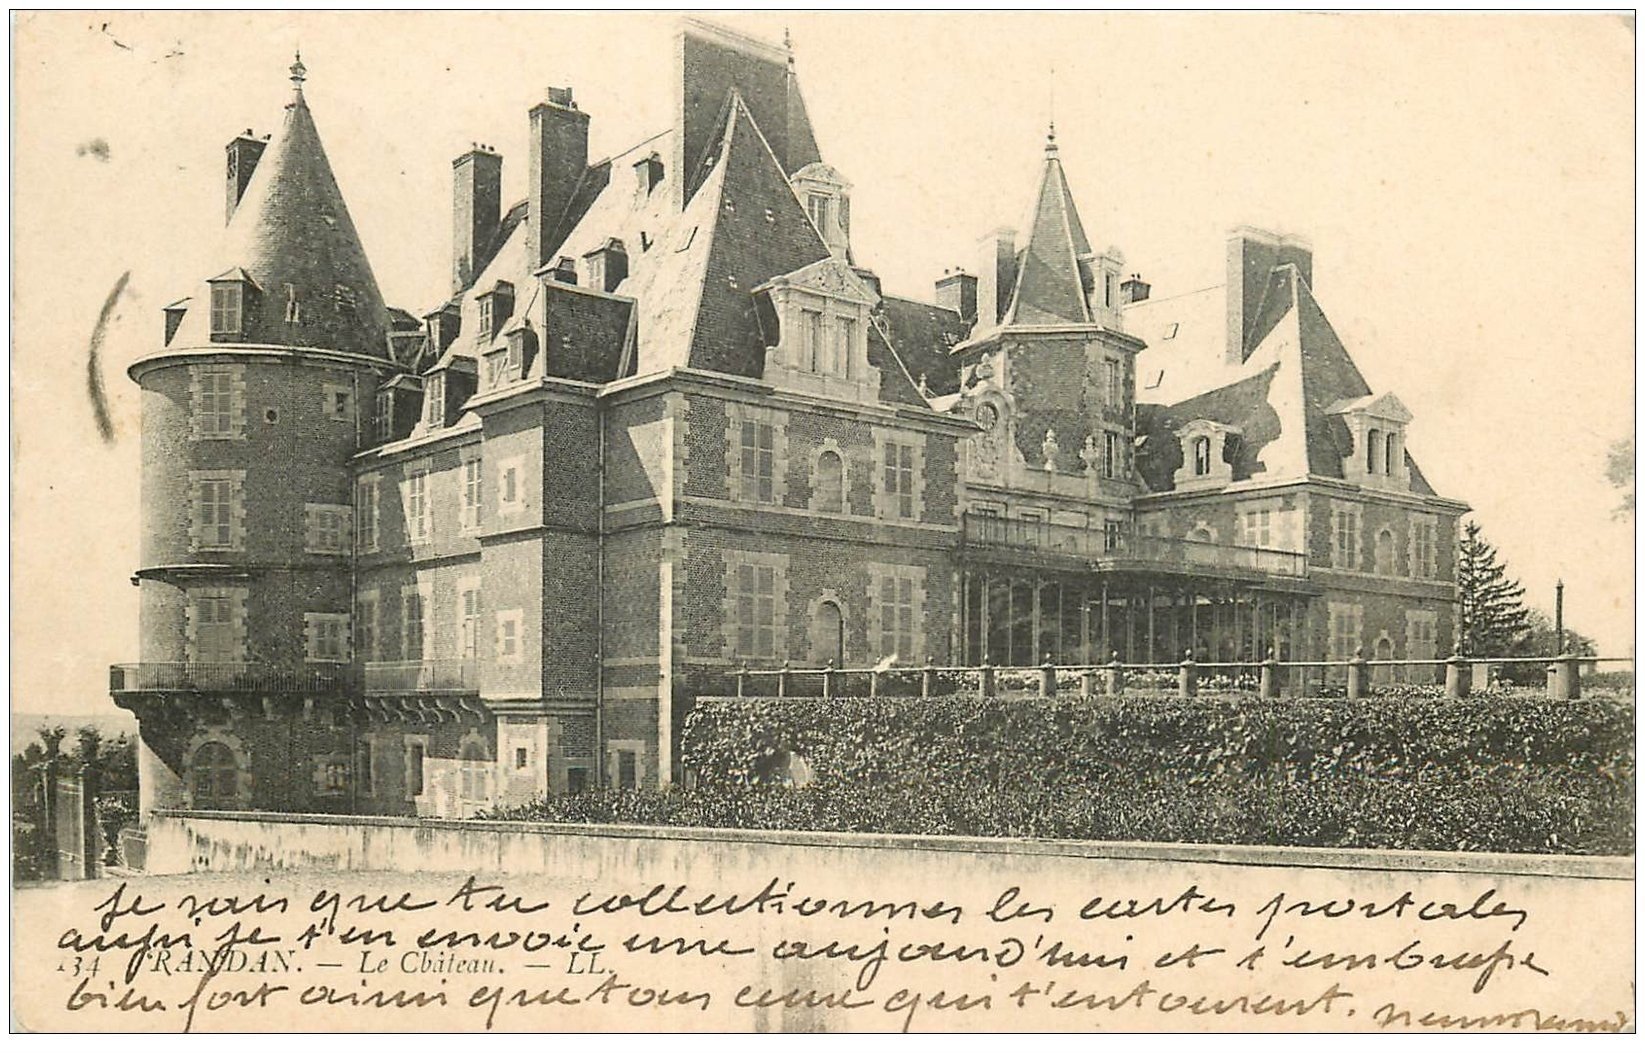 Je sais que tu collectionnes les cartes postales
aussi je t'en envoie une aujourd'hui et t'embrasse
134 RANDAN. — Le Château. — LL.
bien fort ainsi que tous ceux qui t'entourent.